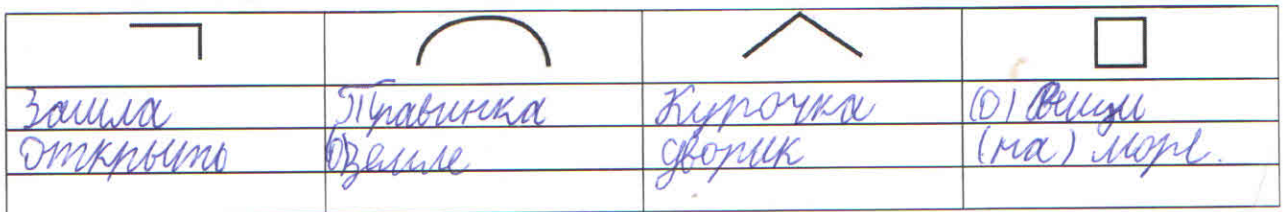 Зашла Травинка Курочка (о) вещи
открыто (о) земле дворик (на) море.